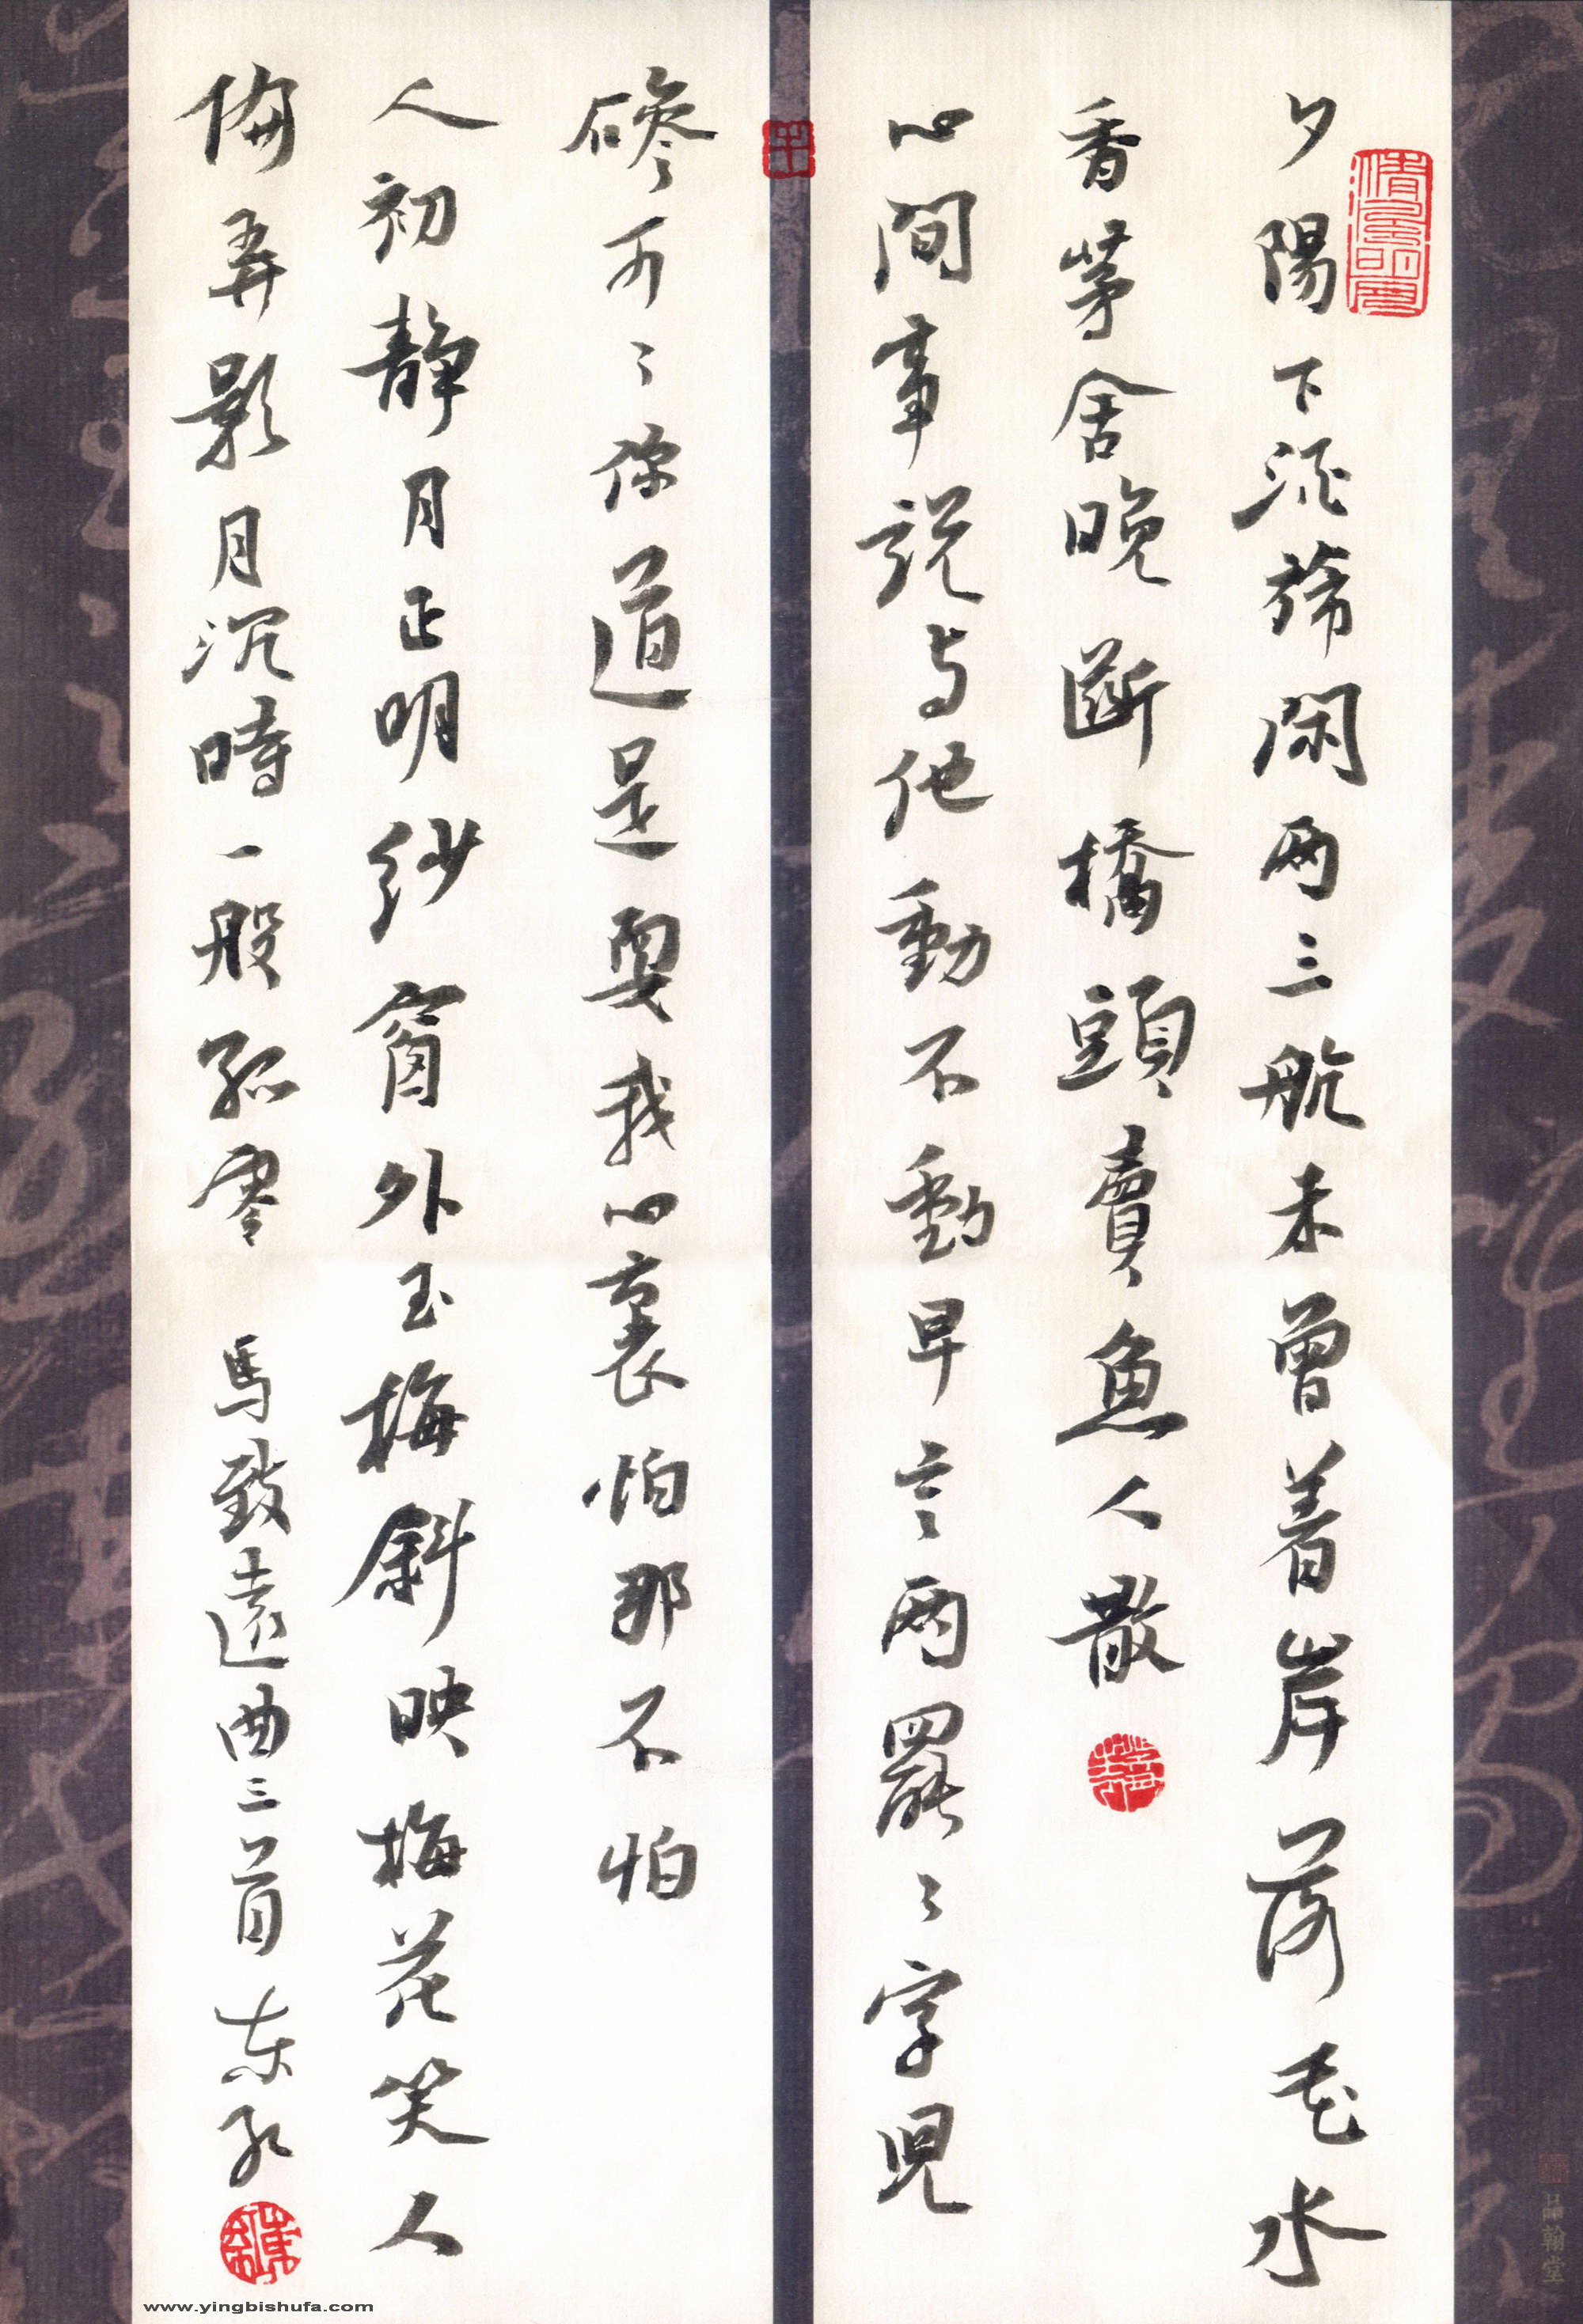 夕陽下酒旆閑兩三航未曾着岸落花水
香茅舍晚斷橋頭賣魚人散
心間事說与他動不動早言兩罷〻字兒
磣可〻你道是耍我心裏怕那不怕
人初靜月正明紗窗外玉梅斜映梅花笑人
偏弄影月沉時一般孤零 馬致遠曲三首
品翰堂
www.yingbishufa.com